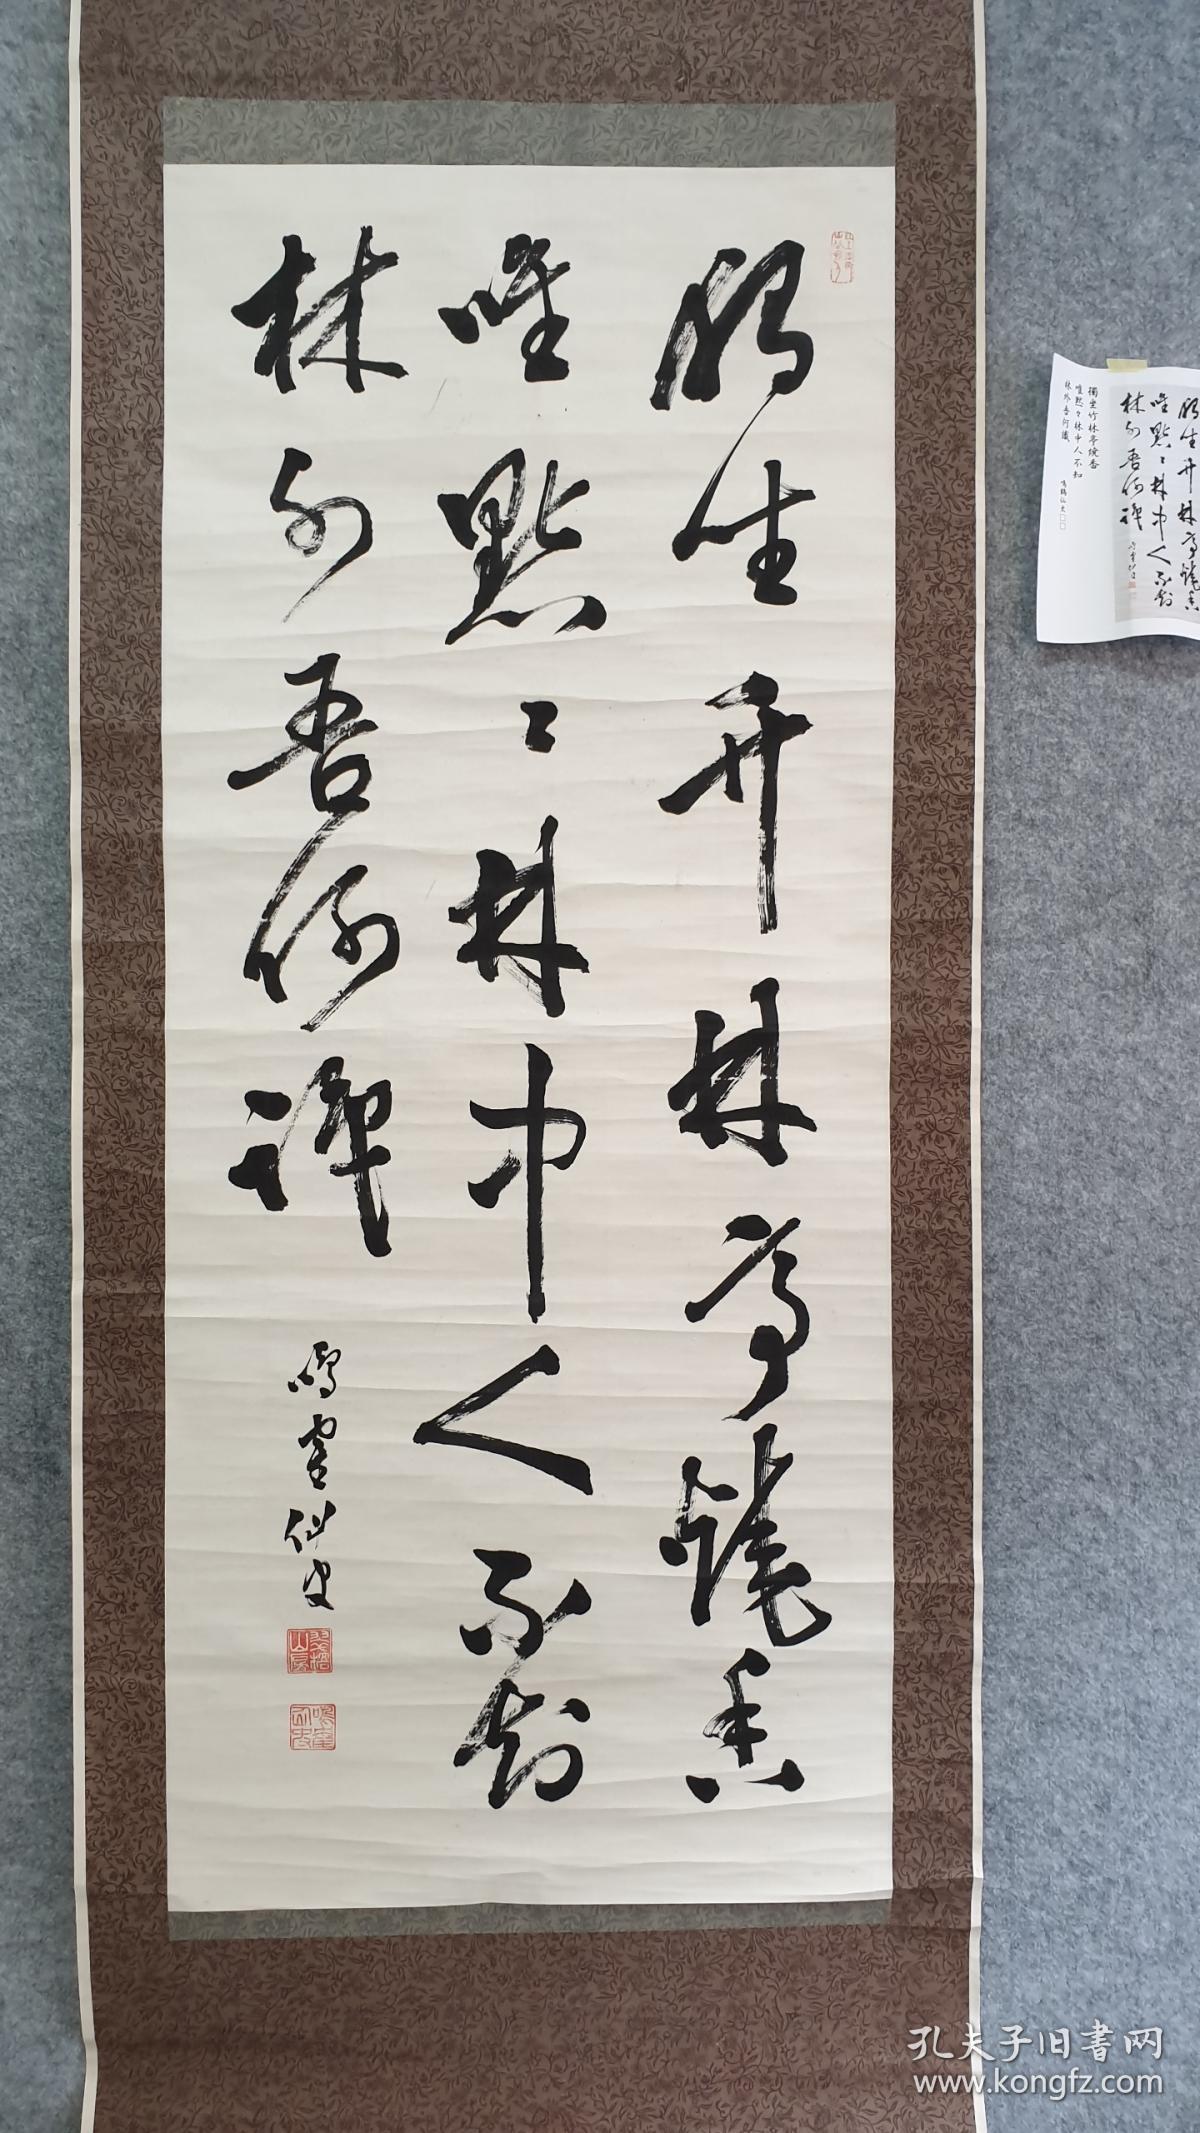 獨坐竹林亭燒香
唯點々林中人不知
林外吾何識
鳴鶴仙史
獨坐竹林亭燒香
唯點々林中人不知
林外吾何識
鳴鶴仙史□□
孔夫子旧书网
www.kongfz.com